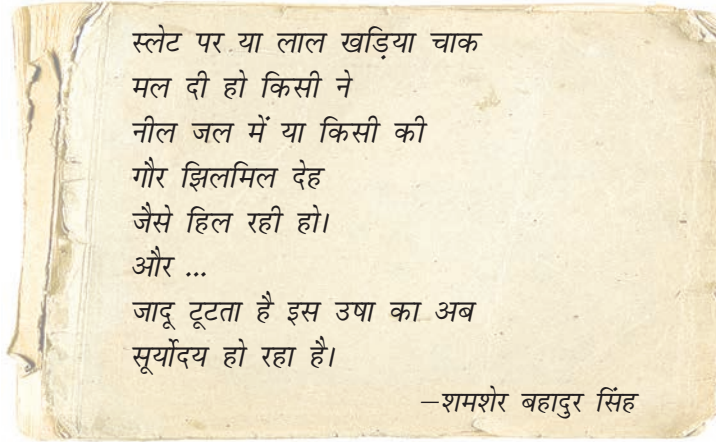 स्लेट पर या लाल खड़िया चाक
मल दी हो किसी ने
नील जल में या किसी की
गौर झिलमिल देह
जैसे हिल रही हो।
और ...
जादू टूटता है इस उषा का अब
सूर्योदय हो रहा है।
–शमशेर बहादुर सिंह